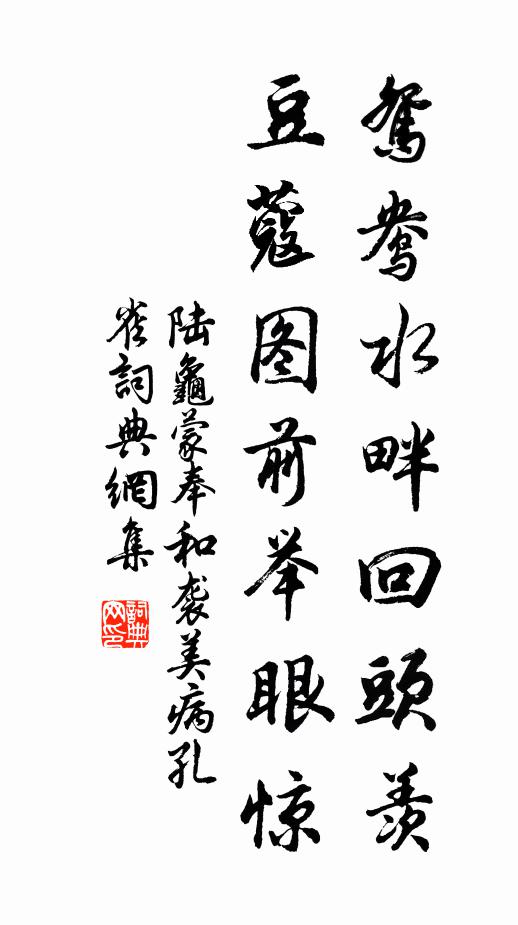 鸳鸯水畔回頭羨
豆蔻图前举眼惊
陆龜蒙奉和袭美病孔
雀詞典網集
詞典网印